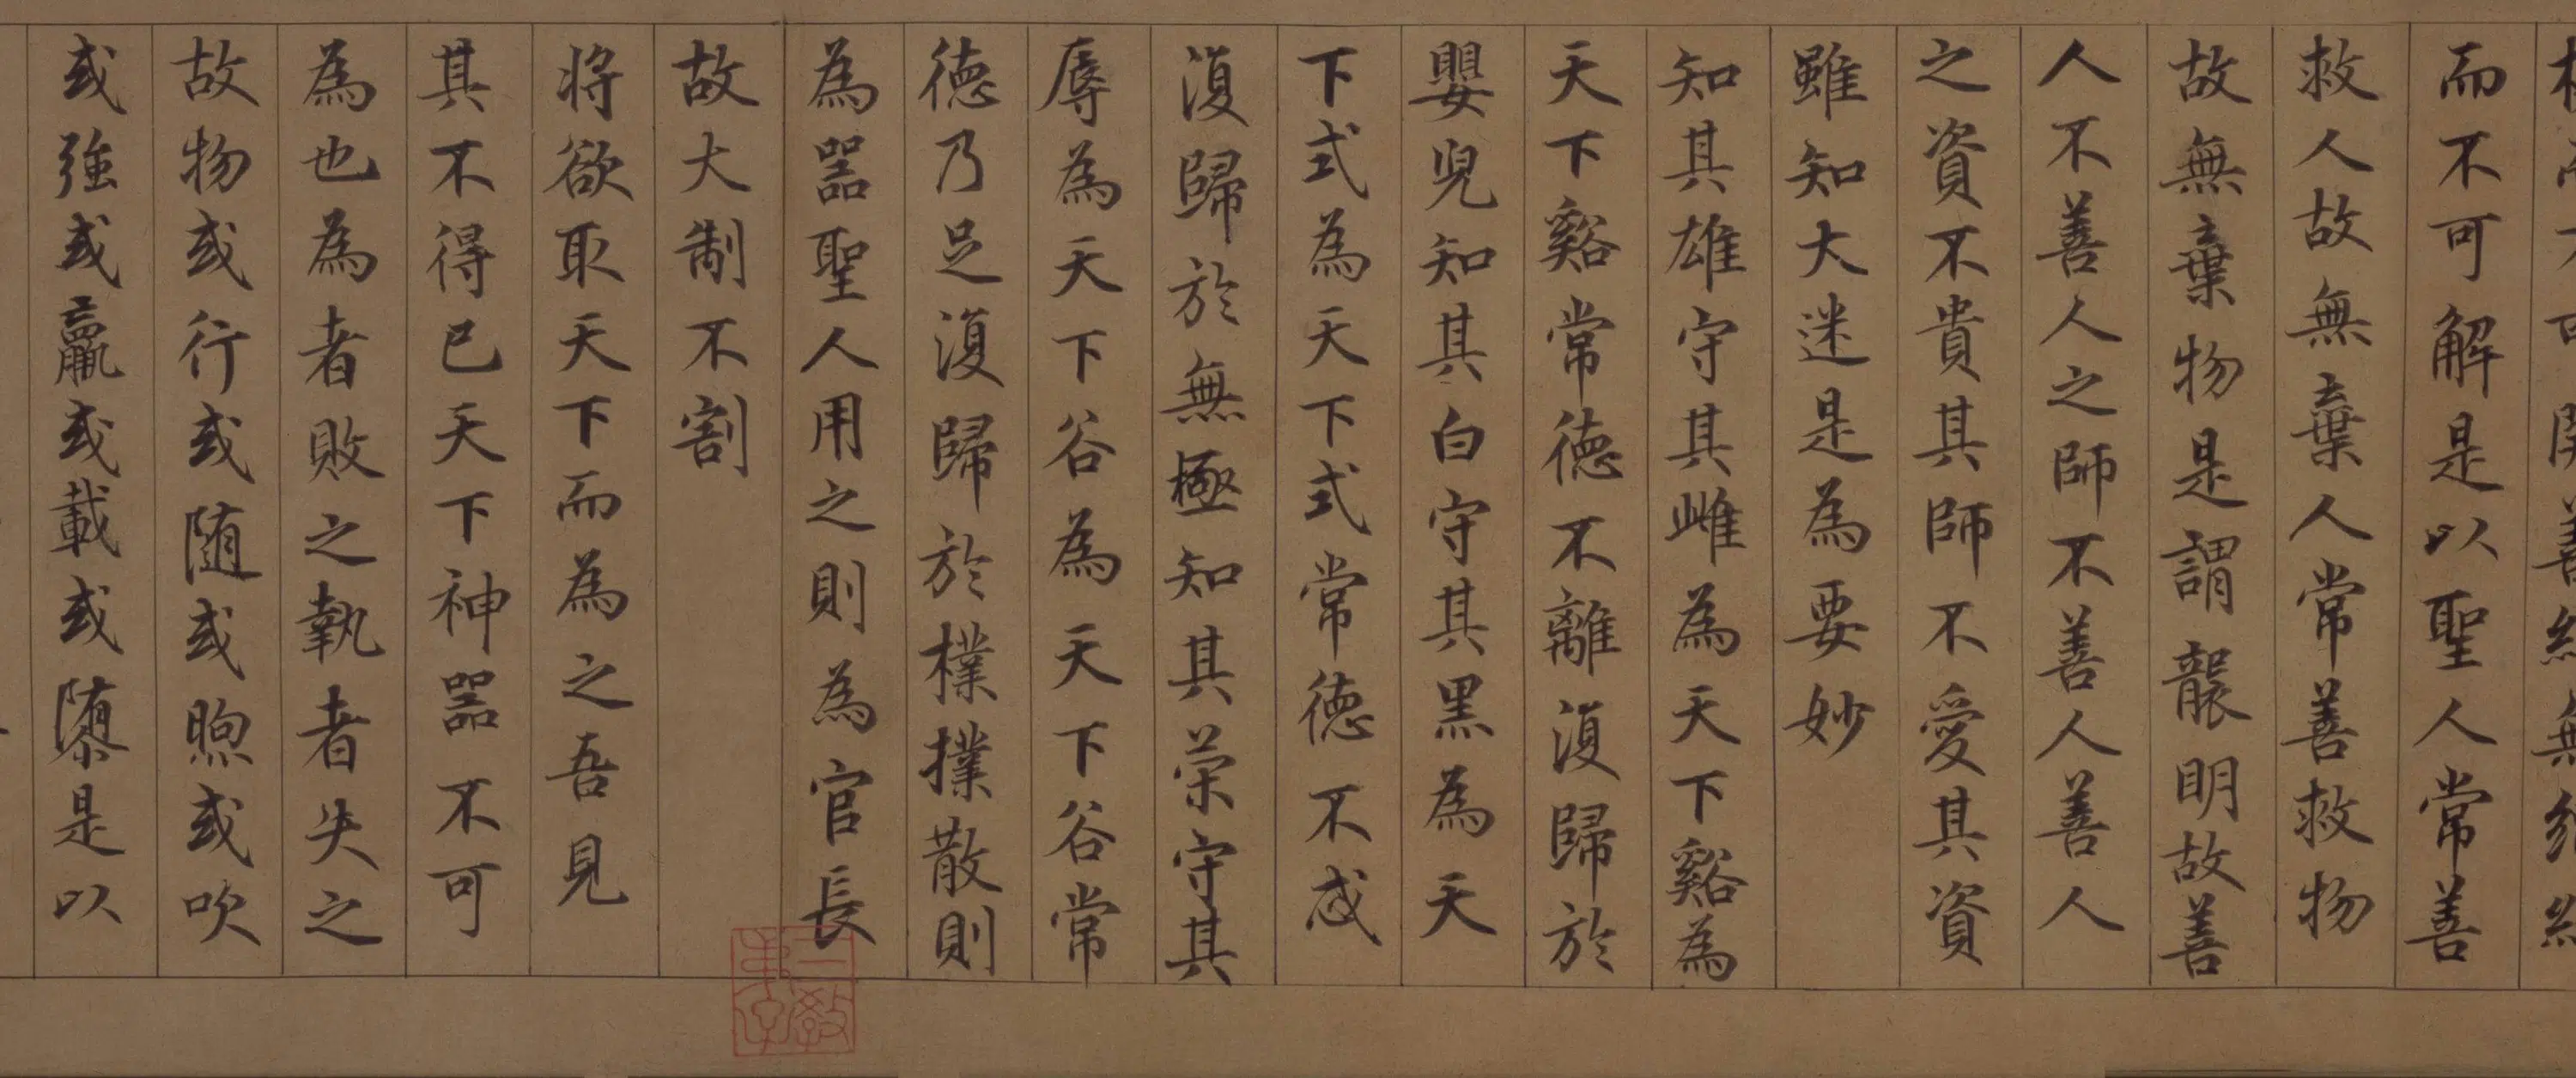 而不可解是以聖人常善
救人故無棄人常善救物
故無棄物是謂襲明故善
人不善人之師不善人善人
之資不貴其師不愛其資
雖知大迷是為要妙
知其雄守其雌為天下谿為
天下谿常德不離復歸於
嬰兒知其白守其黑為天
下式為天下式常德不忒
復歸於無極知其榮守其
辱為天下谷為天下谷常
德乃足復歸於樸樸散則
為器聖人用之則為官長
故大制不割
將欲取天下而為之吾見
其不得已天下神器不可
為也為者敗之執者失之
故物或行或随或煦或吹
或強或羸或載或隳是以